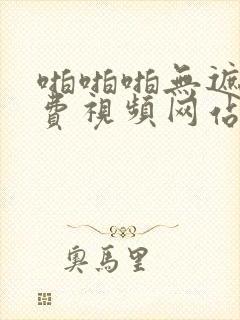 啪啪啪無遮
費視頻网佔
奧馬里